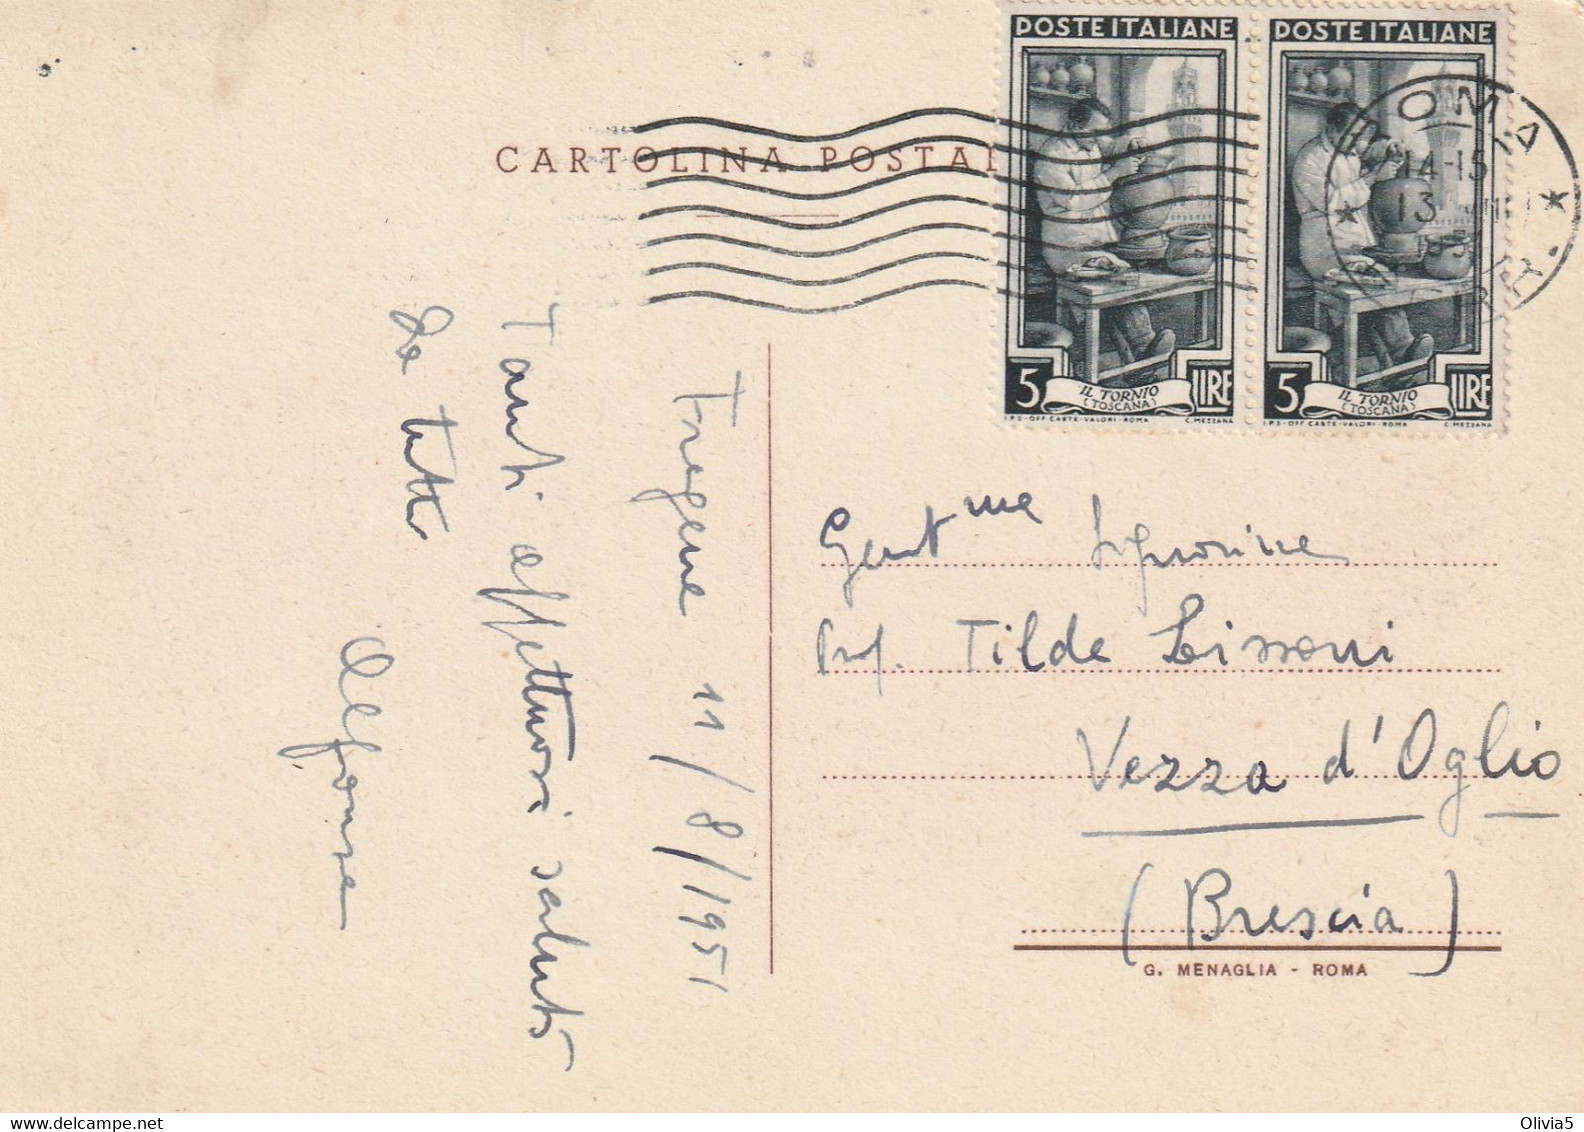 POSTE ITALIANE
POSTE ITALIANE
ROMA
14-15
13 VIII
CARTOLINA POSTAL
5 LIRE
IL TORNIO
(TOSCANA)
I.P.S-OFF CARTE-VALORI-ROMA C. MEZZANA
5 LIRE
IL TORNIO
(TOSCANA)
I.P.S-OFF CARTE-VALORI-ROMA C. MEZZANA
Fregene 11/8/1951
Tanti affettuosi saluti
da tutti
Alfonsa
Gent.me Signorine
Prof. Tilde Lissoni
Vezza d'Oglio
(Brescia)
G. MENAGLIA - ROMA
Olivia5